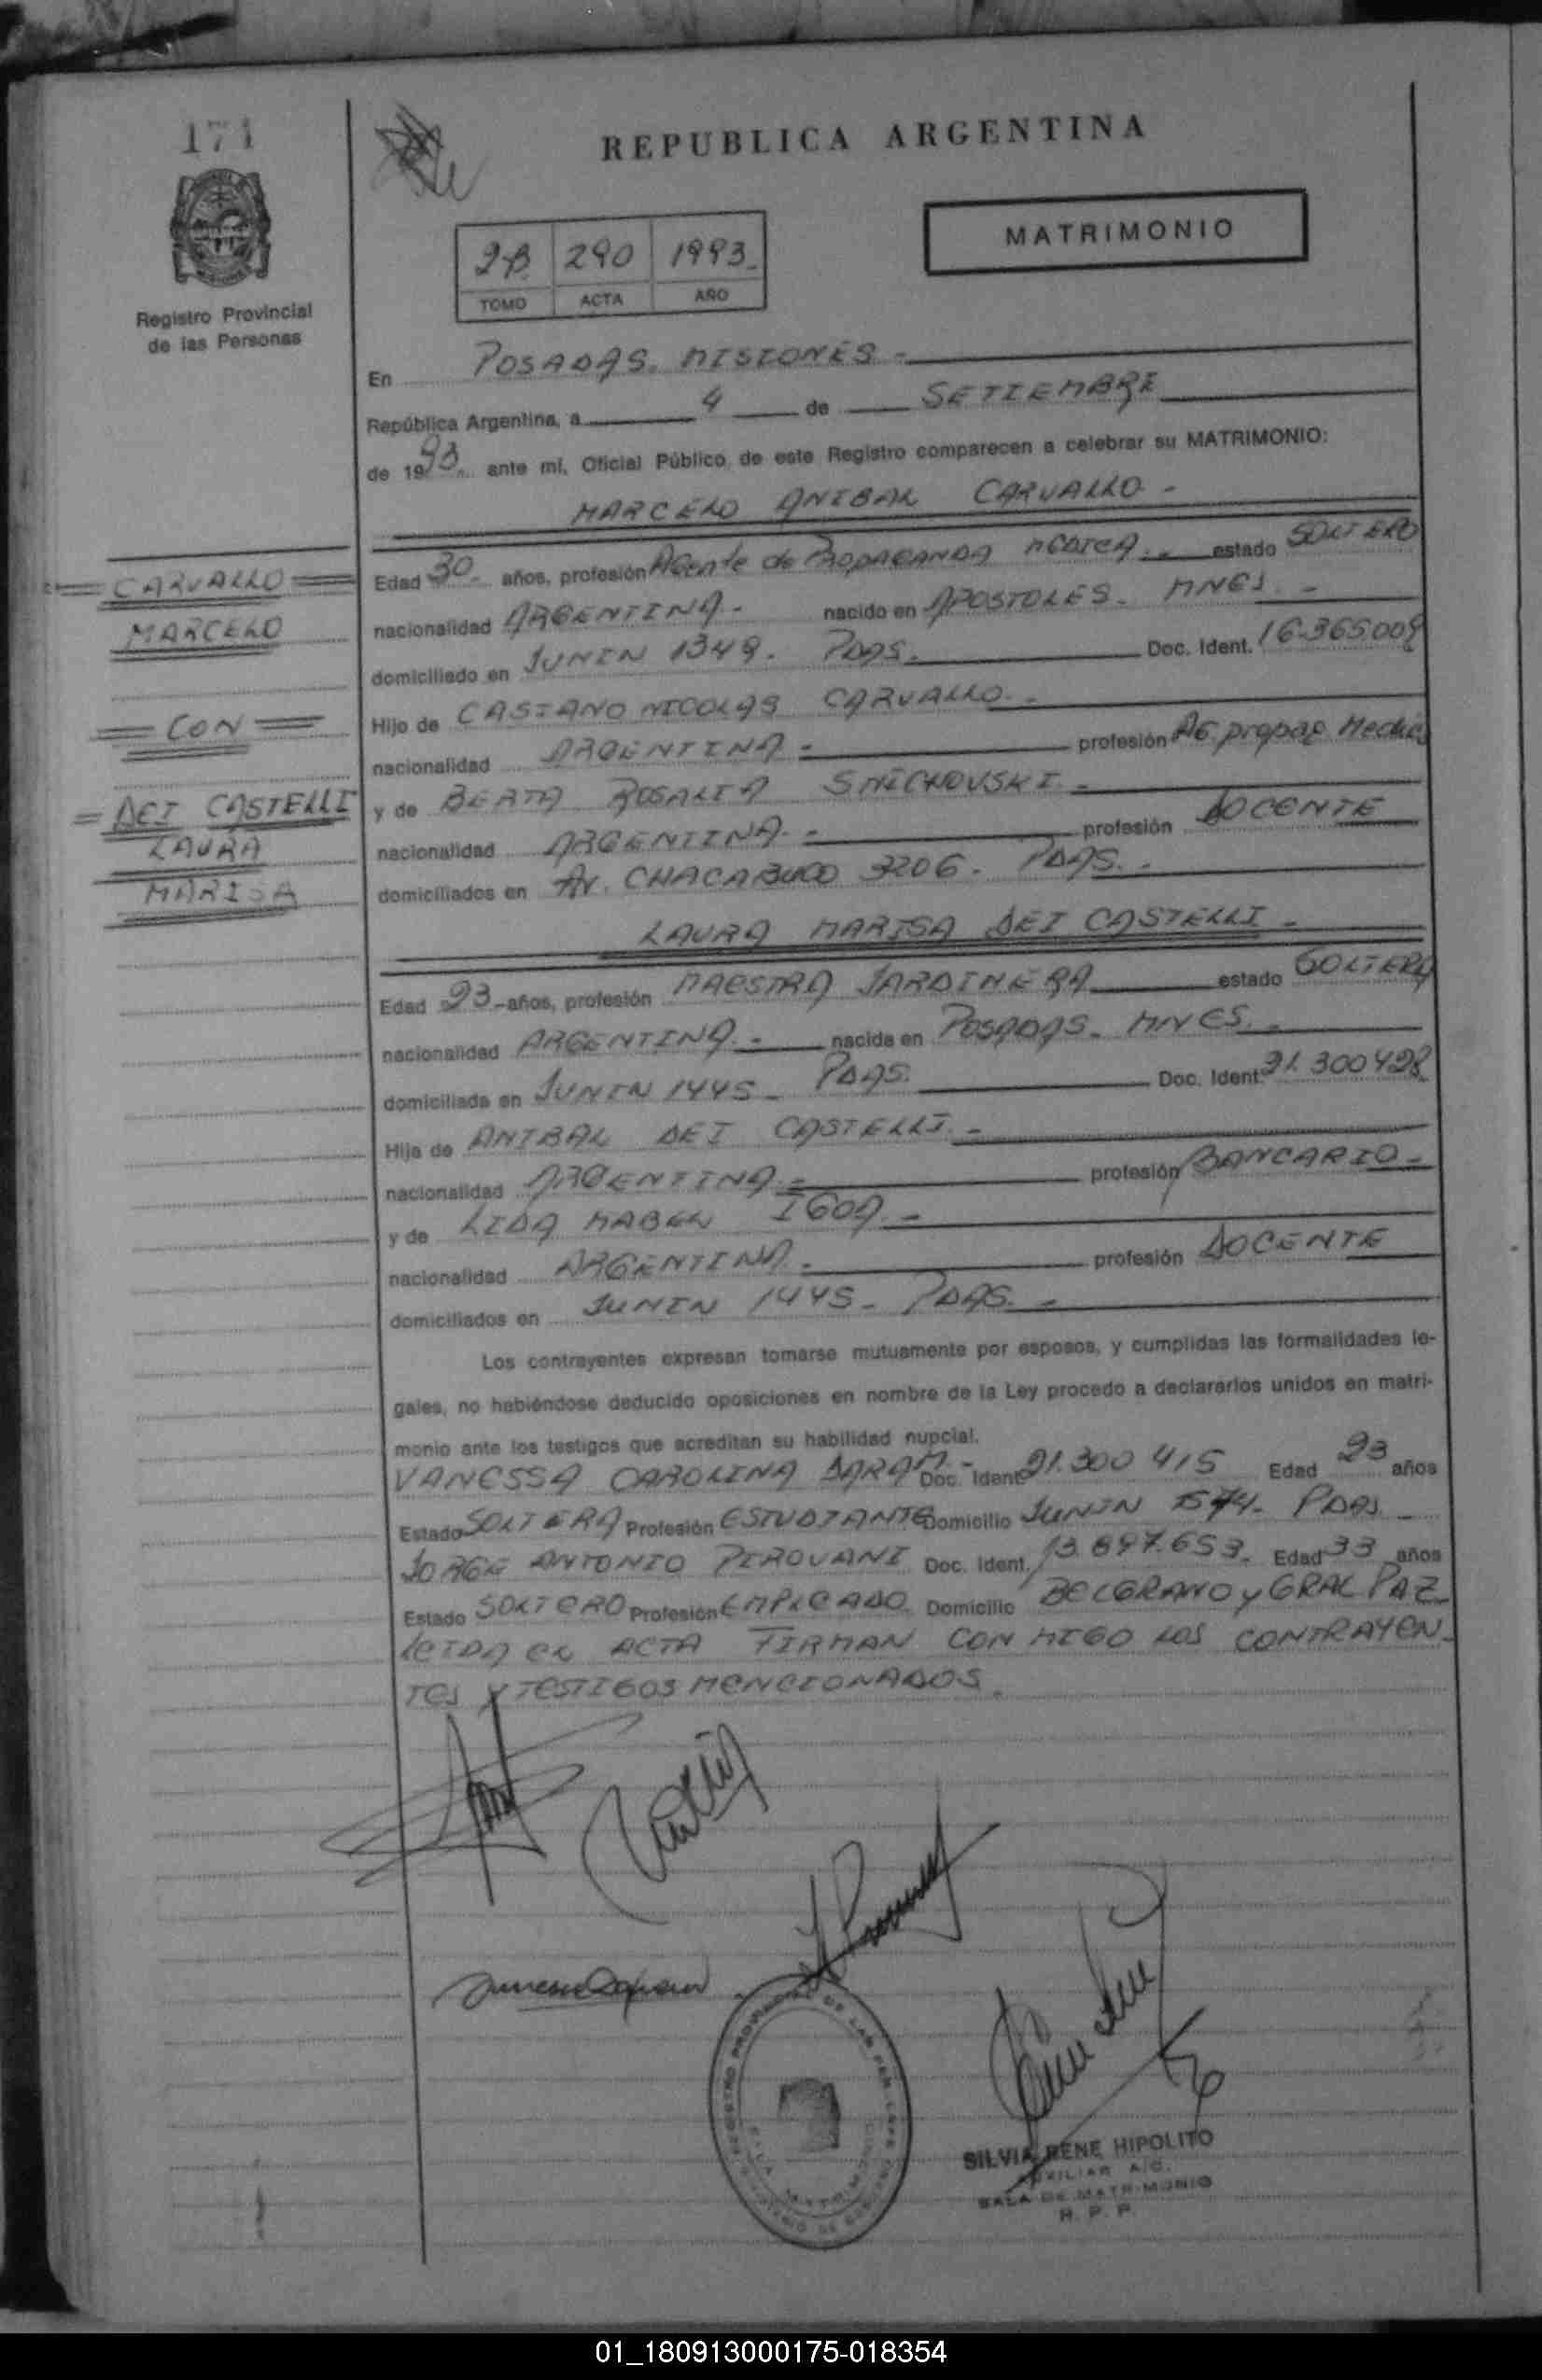 171
REPUBLICA ARGENTINA
MATRIMONIO
2B 290 1993
TOMO ACTA AÑO
Registro Provincial
de las Personas
En POSADAS. MISIONES -
República Argentina, a 4 de SETIEMBRE
de 1993. ante mí, Oficial Público de este Registro comparecen a celebrar su MATRIMONIO:
MARCELO ANIBAL CARVALLO -
Edad 30 años, profesión Agente de PROPAGANDA MEDICA. - estado SOLTERO
nacionalidad ARGENTINA - nacido en APOSTOLES - MNES. -
domiciliado en JUNIN 1349. PDAS. Doc. Ident. 16.365.009
Hijo de CASIANO NICOLAS CARVALLO. -
nacionalidad ARGENTINA - profesión AG. propag Medica
y de BERTA ROSALIA SNICHOVSKI. -
nacionalidad ARGENTINA. - profesión DOCENTE
domiciliados en AV. CHACABUCO 3206. PDAS. -
LAURA MARISA DEI CASTELLI -
Edad 23 - años, profesión MAESTRA JARDINERA estado SOLTERA
nacionalidad ARGENTINA. - nacida en POSADAS - MNES. -
domiciliada en JUNIN 1445 - PDAS. Doc. Ident. 21.300428
Hija de ANIBAL DEI CASTELLI. -
nacionalidad ARGENTINA - profesión BANCARIO -
y de LIDA MABEL IGOA. -
nacionalidad ARGENTINA. profesión DOCENTE
domiciliados en JUNIN 1445 - PDAS. -
Los contrayentes expresan tomarse mutuamente por esposos, y cumplidas las formalidades le-
gales, no habiéndose deducido oposiciones en nombre de la Ley procedo a declararlos unidos en matri-
monio ante los testigos que acreditan su habilidad nupcial.
VANESSA CAROLINA Doc. Ident. 21.300 415 Edad 23 años
Estado SOLTERA Profesión ESTUDIANTE Domicilio JUNIN 1574 - PDAS -
JORGE ANTONIO PIROVANI Doc. Ident. 13.897.653. Edad 33 años
Estado SOLTERO Profesión EMPLEADO. Domicilio BELGRANO y GRAL PAZ
LEIDA EL ACTA FIRMAN CON MIGO LOS CONTRAYEN-
TES Y TESTIGOS MENCIONADOS.
CARVALLO
MARCELO
CON
DEI CASTELLI
LAURA
MARISA
SILVIA RENE HIPOLITO
AUXILIAR A/C.
SALA DE MATRIMONIO
R. P. P.
01_180913000175-018354